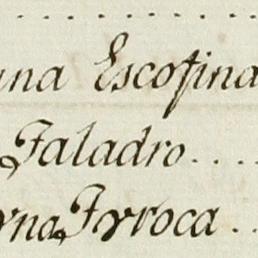 una Escofina
Taladro....
rna Trroca..